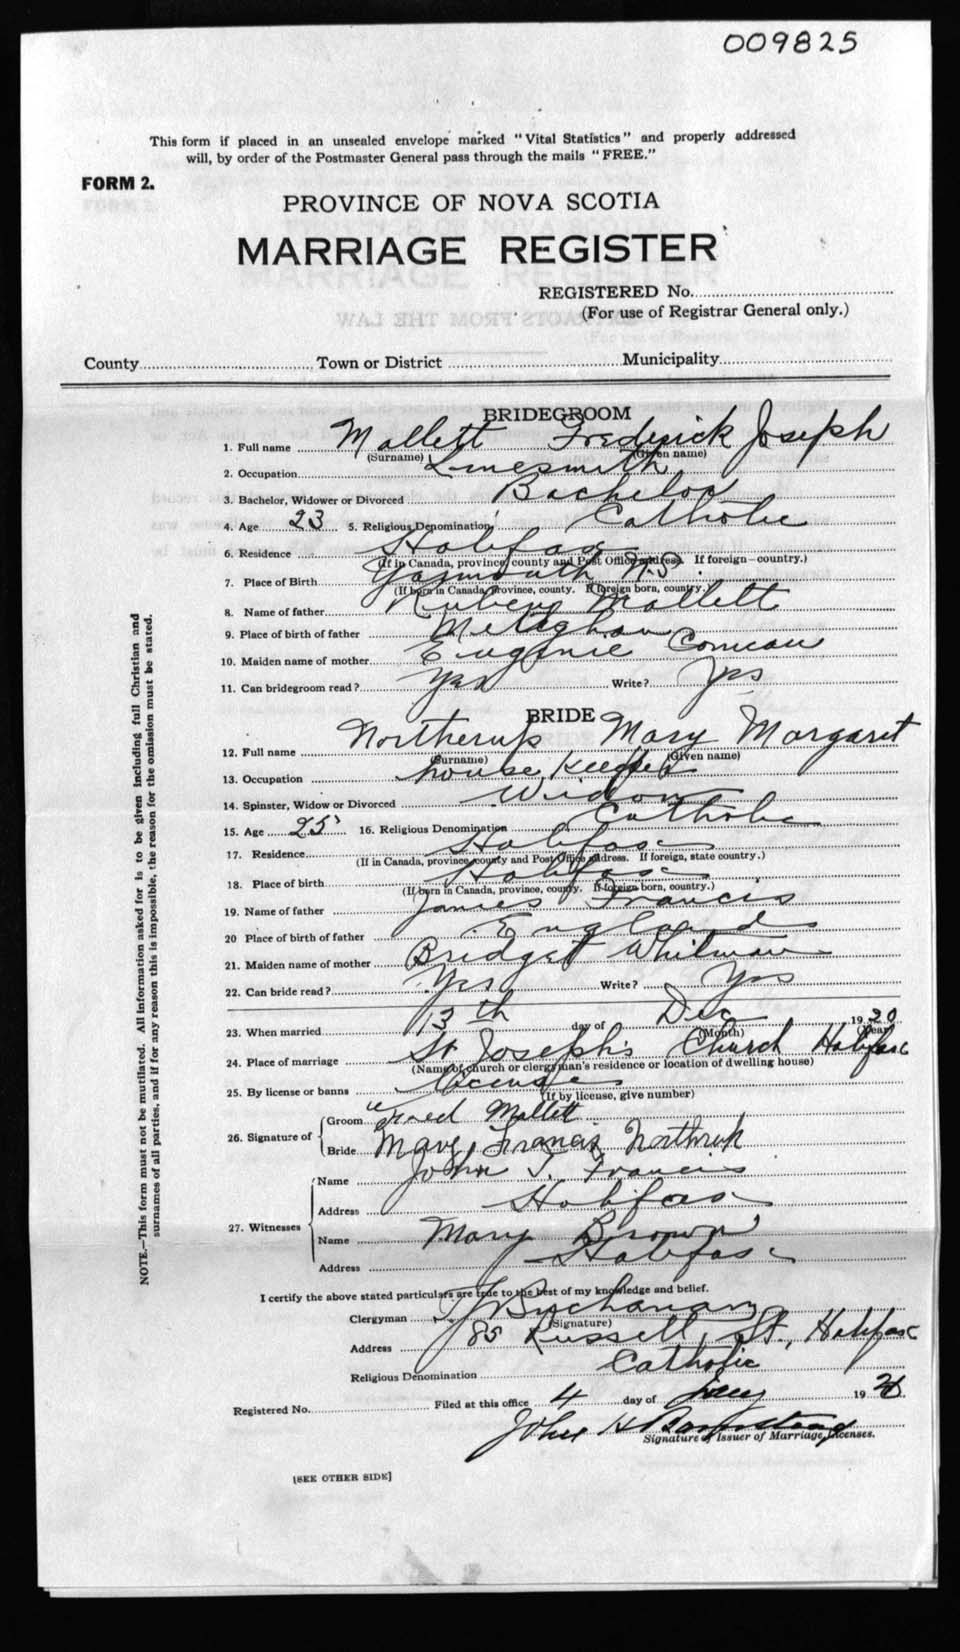 009825
This form if placed in an unsealed envelope marked "Vital Statistics" and properly addressed
will, by order of the Postmaster General pass through the mails "FREE."
FORM 2.
PROVINCE OF NOVA SCOTIA
MARRIAGE REGISTER
REGISTERED No.
(For use of Registrar General only.)
County Town or District Municipality
BRIDEGROOM
1. Full name Mallett Frederick Joseph
(Surname) (Given name)
2. Occupation Linesmith
3. Bachelor, Widower or Divorced Bachelor
4. Age 23 5. Religious Denomination Catholic
6. Residence Halifax
(If in Canada, province, county and Post Office address. If foreign—country.)
7. Place of Birth Yarmouth N.S
(If born in Canada, province, county. If foreign born, country.)
8. Name of father Rubens Mallett
9. Place of birth of father Meteghan
10. Maiden name of mother Eugenie Comeau
11. Can bridegroom read? Yes Write? Yes
BRIDE
12. Full name Northerup Mary Margaret
(Surname) (Given name)
13. Occupation house keeper
14. Spinster, Widow or Divorced Widow
15. Age 25 16. Religious Denomination Catholic
17. Residence Halifax
(If in Canada, province, county and Post Office address. If foreign, state country.)
18. Place of birth Halifax
(If born in Canada, province, county. If foreign born, country.)
19. Name of father James Francis
20 Place of birth of father England
21. Maiden name of mother Bridget Whitman
22. Can bride read? Yes Write? Yes
23. When married 13th day of Dec 1920
(Month) (Year)
24. Place of marriage St Joseph's Church Halifax
(Name of church or clergyman's residence or location of dwelling house)
25. By license or banns License
(If by license, give number)
26. Signature of Groom Fred Mallett
Bride Mary Francis Northrup
27. Witnesses Name John T. Francis
Address Halifax
Name Mary Brown
Address Halifax
I certify the above stated particulars are true to the best of my knowledge and belief.
Clergyman Buchanan
(Signature)
Address 85 Russell St., Halifax
Religious Denomination Catholic
Registered No. Filed at this office 4 day of Jany 192
John H
Signature of Issuer of Marriage Licenses.
[SEE OTHER SIDE]
NOTE.—This form must not be mutilated. All information asked for is to be given including full Christian and
surnames of all parties, and if for any reason this is impossible, the reason for the omission must be stated.